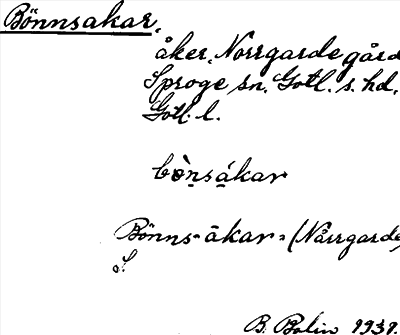 Bönnsakar,
åker, Norrgarde gård
Sproge sn. Gotl. s. hd.
Gotl. l.
bònsákar
Bönns-åkar- (Nårrgarde)
S.
B. Bolin 1931.